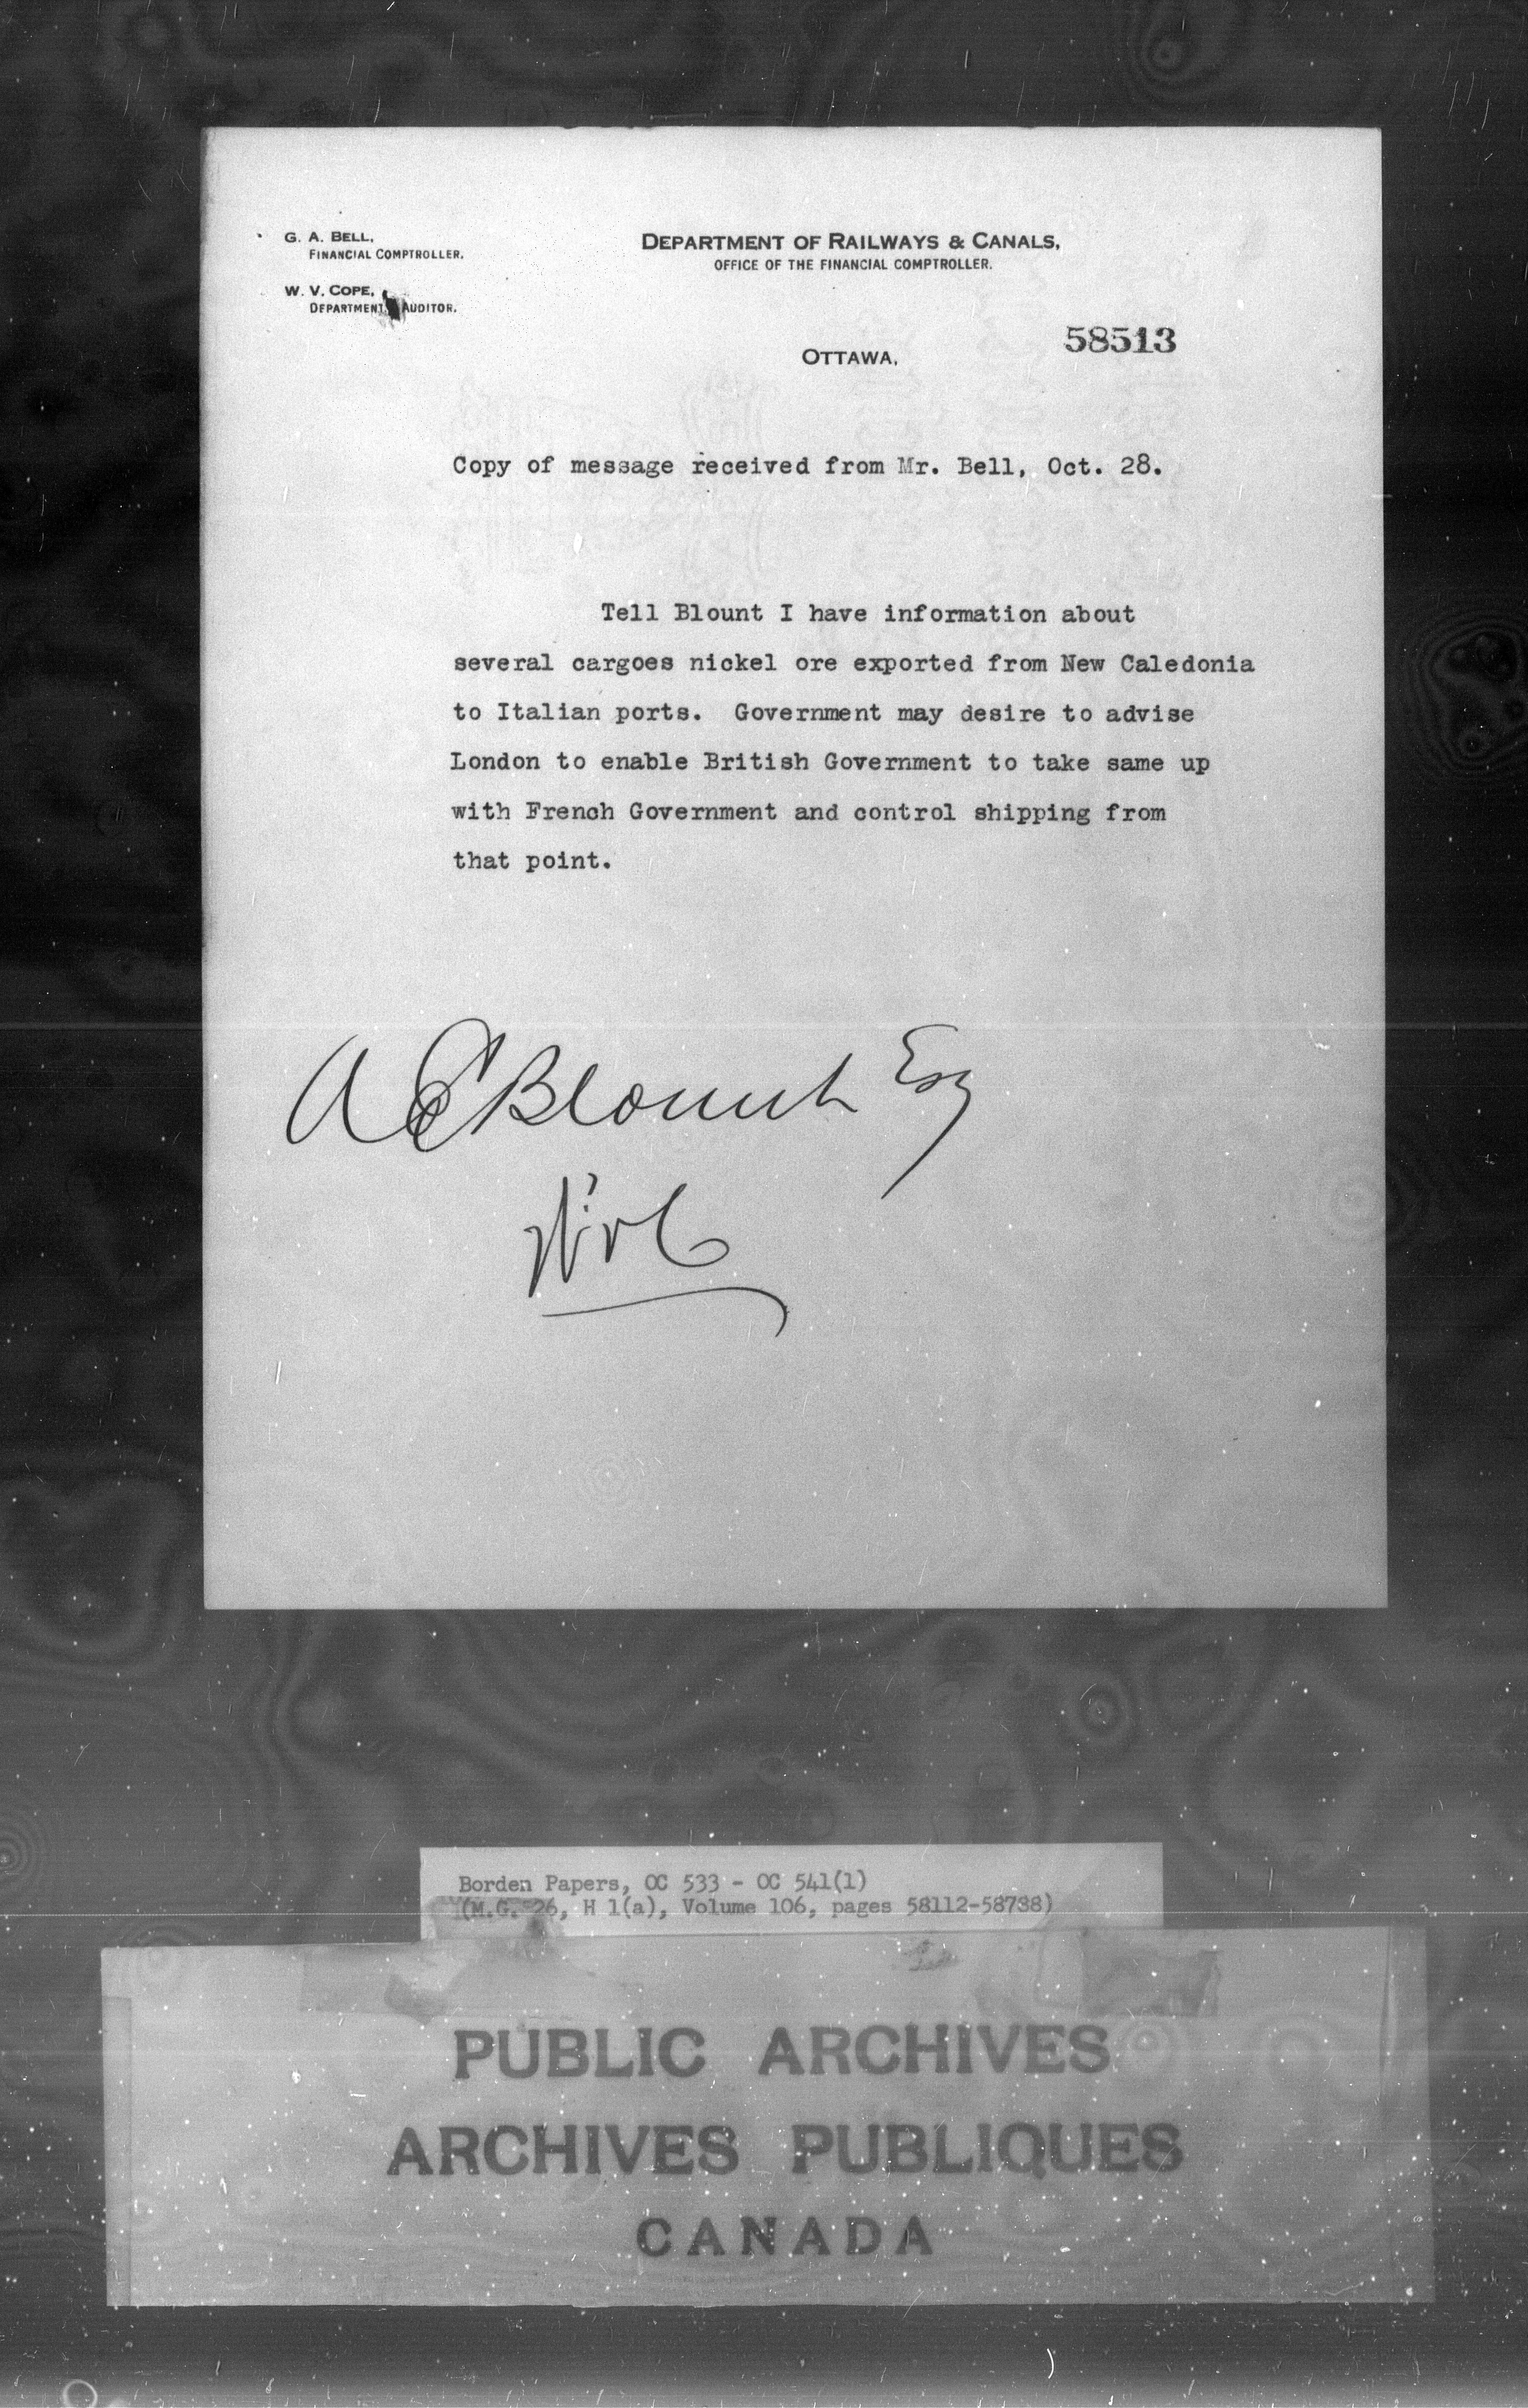 G. A. BELL,
FINANCIAL COMPTROLLER.
W. V. COPE,
DEPARTMENT AUDITOR.
DEPARTMENT OF RAILWAYS & CANALS,
OFFICE OF THE FINANCIAL COMPTROLLER.
OTTAWA,
58513
Copy of message received from Mr. Bell, Oct. 28.
Tell Blount I have information about
several cargoes nickel ore exported from New Caledonia
to Italian ports. Government may desire to advise
London to enable British Government to take same up
with French Government and control shipping from
that point.
A E Blount Esq
WVC
Borden Papers, OC 533 - OC 541(1)
(M.G. 26, H 1(a), Volume 106, pages 58112-58738)
PUBLIC ARCHIVES
ARCHIVES PUBLIQUES
CANADA